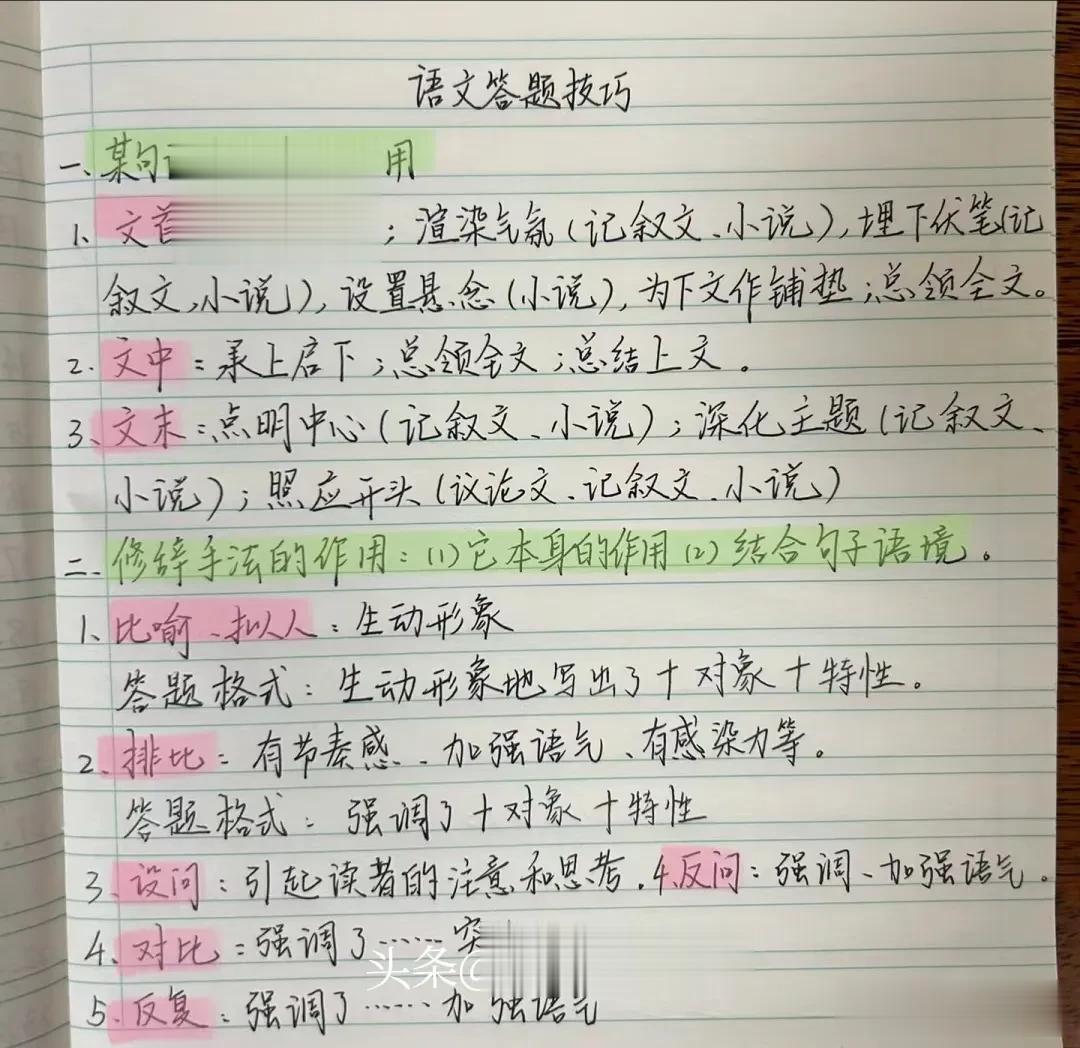 语文答题技巧
一、某句 用
1、文首 ；渲染气氛(记叙文、小说)，埋下伏笔(记
叙文、小说)，设置悬念(小说)，为下文作铺垫；总领全文。
2、文中：承上启下；总领全文；总结上文。
3、文末：点明中心(记叙文、小说)；深化主题(记叙文、
小说)；照应开头(议论文、记叙文、小说)
二、修辞手法的作用：(1)它本身的作用(2)结合句子语境。
1、比喻、拟人：生动形象
答题格式：生动形象地写出了+对象+特性。
2、排比：有节奏感、加强语气、有感染力等。
答题格式：强调了+对象+特性
3、设问：引起读者的注意和思考。4、反问：强调、加强语气。
4、对比：强调了……突
头条@
5、反复：强调了……加强语气